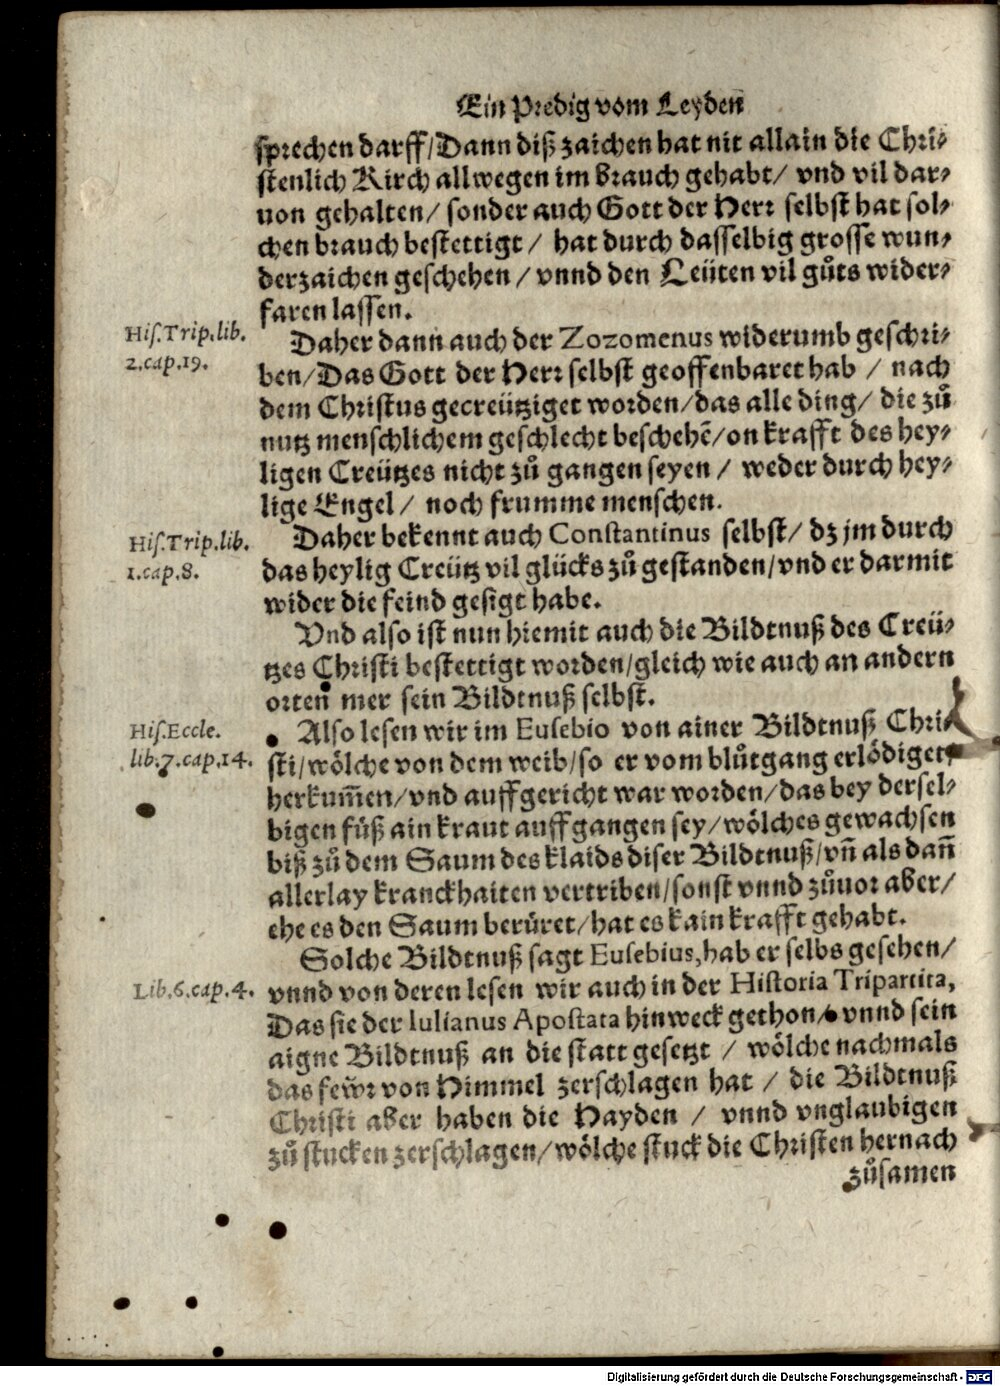 Ein Predig vom Leyden
sprechen darff/Dann diß zaichen hat nit allain die Chri-
stenlich Kirch allwegen im brauch gehabt/ vnd vil dar-
uon gehalten/ sonder auch Gott der Herr selbst hat sol-
chen brauch bestettigt/ hat durch dasselbig grosse wun-
derzaichen geschehen/ vnnd den Leüten vil gůts wider-
faren lassen.
His.Trip.lib.
2.cap.19.
Daher dann auch der Zozomenus widerumb geschri-
ben/Das Gott der Herr selbst geoffenbaret hab / nach
dem Christus gecreütziget worden/das alle ding/ die zů
nutz menschlichem geschlecht beschehẽ/on krafft des hey-
ligen Creützes nicht zů gangen seyen / weder durch hey-
lige Engel/ noch frumme menschen.
His.Trip.lib.
1.cap.8.
Daher bekennt auch Constantinus selbst/ dz jm durch
das heylig Creütz vil glücks zů gestanden/vnd er darmit
wider die feind gesigt habe.
Vnd also ist nun hiemit auch die Bildtnuß des Creü-
tzes Christi bestettigt worden/gleich wie auch an andern
orten mer sein Bildtnuß selbst.
His.Eccle.
lib.7.cap.14.
Also lesen wir im Eusebio von ainer Bildtnuß Chri-
sti/wölche von dem weib/so er vom blůtgang erlödiget,
herkum̃en/vnd auffgericht war worden/das bey dersel-
bigen fůß ain kraut auffgangen sey/wölches gewachsen
biß zů dem Saum des klaids diser Bildtnuß/vñ als dañ
allerlay kranckhaiten vertriben/sonst vnnd zůuor aber/
ehe es den Saum berůret/hat es kain krafft gehabt.
Solche Bildtnuß sagt Eusebius,hab er selbs gesehen/
Lib.6.cap.4.
vnnd von deren lesen wir auch in der Historia Tripartita,
Das sie der Iulianus Apostata hinweck gethon/ vnnd sein
aigne Bildtnuß an die statt gesetzt / wölche nachmals
das fewr von Himmel zerschlagen hat / die Bildtnuß
Christi aber haben die Hayden / vnnd vnglaubigen
zů stucken zerschlagen/wölche stuck die Christen hernach
zůsamen
Digitalisierung gefördert durch die Deutsche Forschungsgemeinschaft - DFG